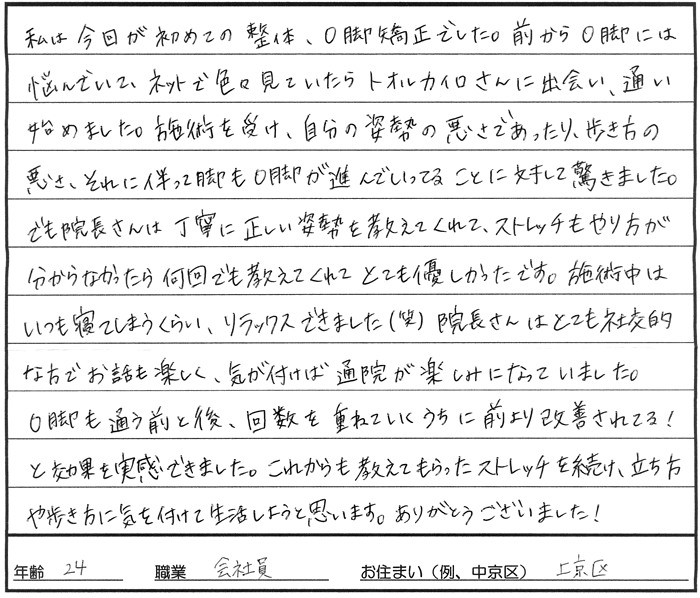 私は今回が初めての整体、O脚矯正でした。前からO脚には
悩んでいて、ネットで色々見ていたらトオルカイロさんに出会い、通い
始めました。施術を受け、自分の姿勢の悪さであったり、歩き方の
悪さ、それに伴って脚もO脚が進んでいってることに対して驚きました。
でも院長さんは丁寧に正しい姿勢を教えてくれて、ストレッチもやり方が
分からなかったら何回でも教えてくれてとても優しかったです。施術中は
いつも寝てしまうくらい、リラックスできました(笑)院長さんはとても社交的
な方でお話も楽しく、気が付けば通院が楽しみになっていました。
O脚も通う前と後、回数を重ねていくうちに前より改善されてる!
と効果を実感できました。これからも教えてもらったストレッチを続け、立ち方
や歩き方に気を付けて生活しようと思います。ありがとうございました!
年齢 24 職業 会社員 お住まい(例、中京区) 上京区